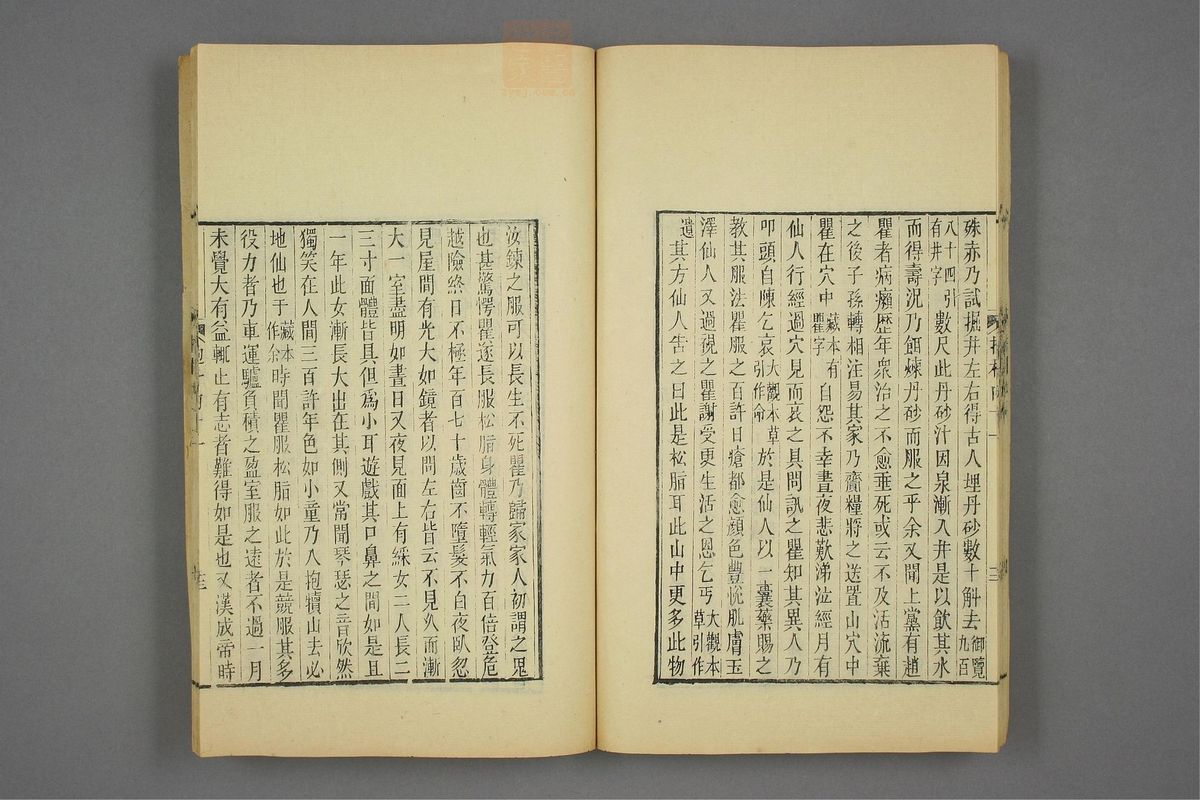 殊赤乃試掘井左右得古人埋丹砂數十斛去御覽九百
八十四引有井字數尺此丹砂汁因泉漸入井是以飲其水
而得壽況乃餌煉丹砂而服之乎余又聞上黨有趙
瞿者病癩歷年衆治之不愈垂死或云不及活流棄
之後子孫轉相注易其家乃齎糧將之送置山穴中
瞿在穴中藏本有瞿字自怨不幸晝夜悲歎涕泣經月有
仙人行經過穴見而哀之具問訊之瞿知其異人乃
叩頭自陳乞哀大觀本草引作命於是仙人以一囊藥賜之
教其服法瞿服之百許日瘡都愈顏色豐悅肌膚玉
澤仙人又過視之瞿謝受更生活之恩乞丐大觀本草引作
遺其方仙人告之曰此是松脂耳此山中更多此物
汝鍊之服可以長生不死瞿乃歸家家人初謂之鬼
也甚驚愕瞿遂長服松脂身體轉輕氣力百倍登危
越險終日不極年百七十歲齒不墮髮不白夜臥忽
見屋間有光大如鏡者以問左右皆云不見久而漸
大一室盡明如晝日又夜見面上有綵女二人長二
三寸面體皆具但為小耳遊戲其口鼻之間如是且
一年此女漸長大出在其側又常聞琴瑟之音欣然
獨笑在人間三百許年色如小童乃入抱犢山去必
地仙也于藏本作余時聞瞿服松脂如此於是競服其多
役力者乃車運驢負積之盈室服之遠者不過一月
未覺大有益輒止有志者難得如是也又漢成帝時